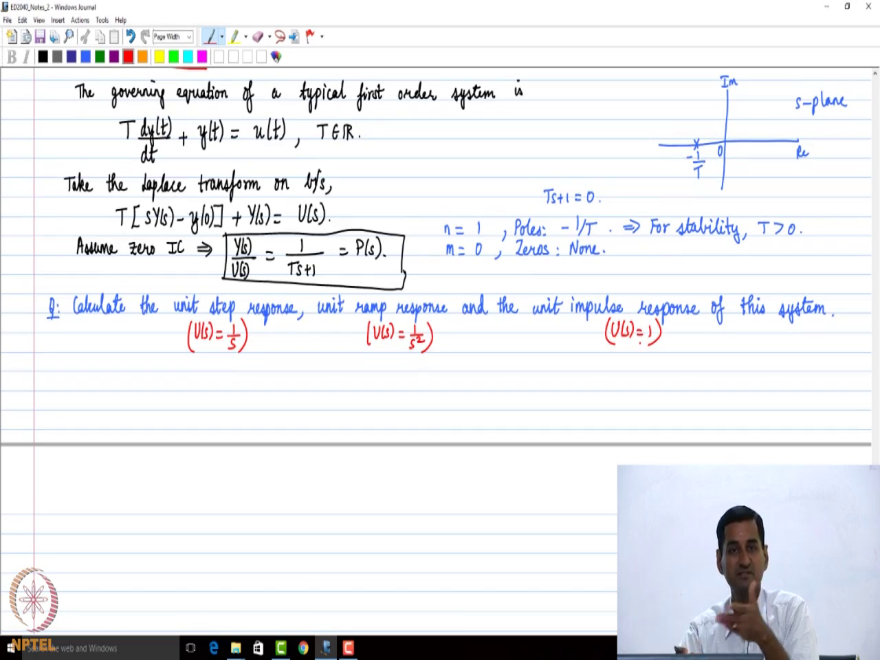 ED2040_Notes_2 - Windows Journal
File Edit View Insert Actions Tools Help
Page Width
B I
The governing equation of a typical first order system is
T dy(t)/dt + y(t) = u(t), T∈ℝ.
Take the Laplace transform on b/s,
T[sY(s) - y(0)] + Y(s) = U(s).
Assume zero IC ⇒ Y(s)/U(s) = 1/(Ts+1) = P(s).
Im
s-plane
-1/T
0
Re
Ts+1=0.
n = 1, Poles: -1/T. ⇒ For stability, T>0.
m = 0, Zeros: None.
Q: Calculate the unit step response, unit ramp response and the unit impulse response of this system.
(U(s)=1/s) (U(s)=1/s²) (U(s)=1)
NPTEL
the web and Windows